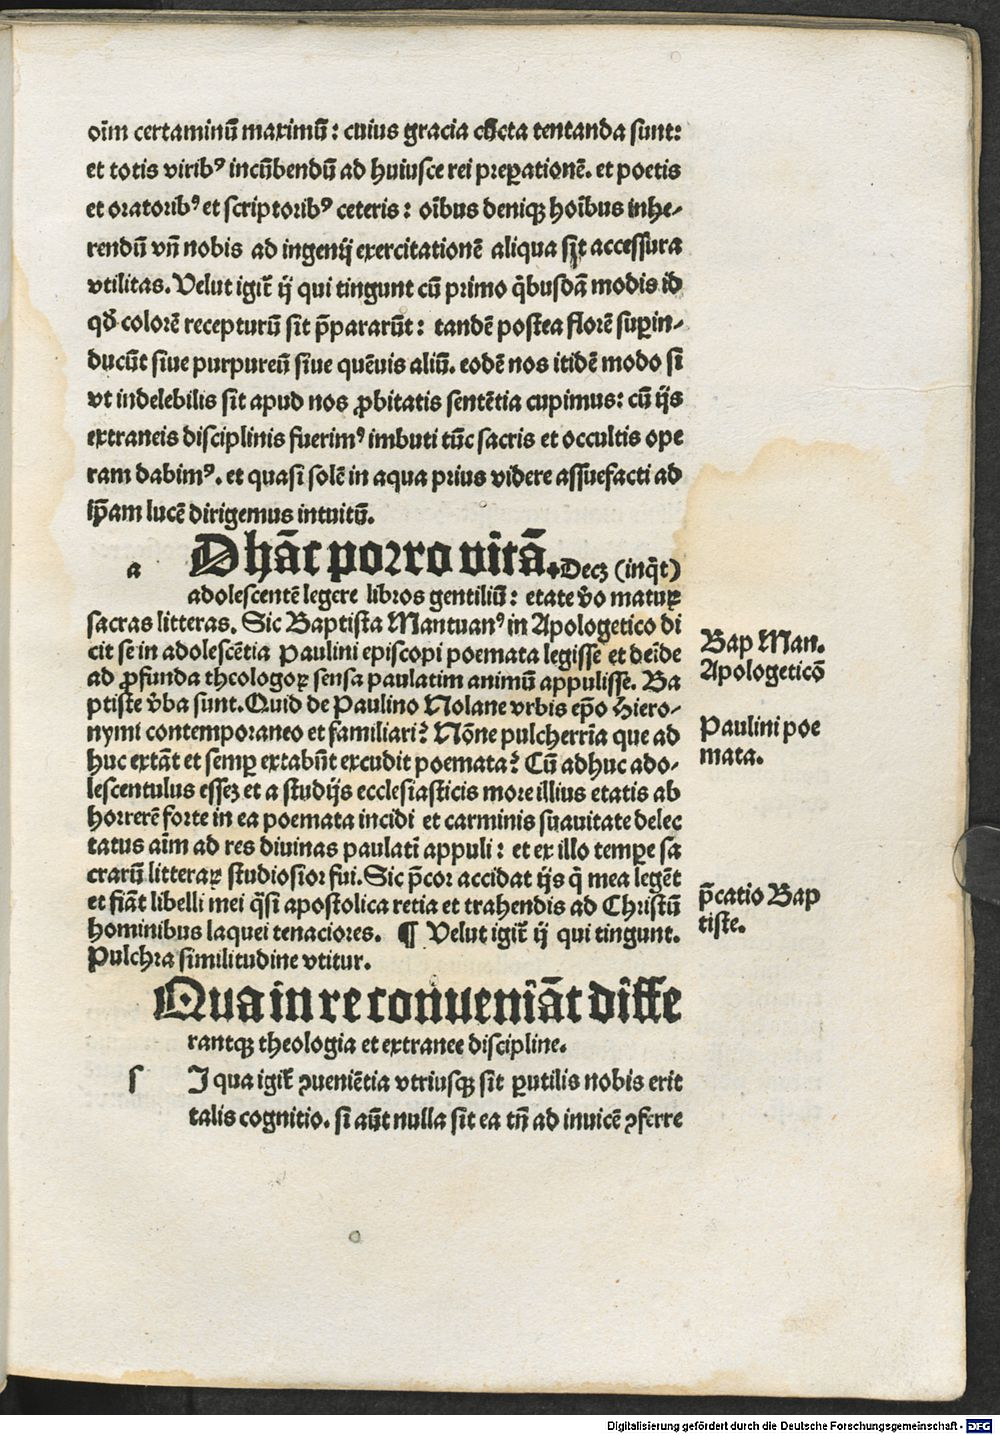 oīm certaminū maximū: cuius gracia cūcta tentanda sunt:
et totis viribꝰ incūbendū ad huiusce rei preꝑationē. et poetis
et oratoribꝰ et scriptoribꝰ ceteris: oībus deniqꝫ hoībus inhe⸗
rendū vn̄ nobis ad ingenij exercitationē aliqua sit accessura
vtilitas. Velut igit̄ ij qui tingunt cū primo q̄busdā modis id
qd̄ colorē recepturū sit p̄pararūt: tandē postea florē suꝑin⸗
ducūt siue purpureū siue quēuis aliū. eodē nos itidē modo si
vt indelebilis sit apud nos ꝓbitatis sentētia cupimus: cū ijs
extraneis disciplinis fuerimꝰ imbuti tūc sacris et occultis ope
ram dabimꝰ. et quasi solē in aqua prius videre assuefacti ad
ip̄am lucē dirigemus intuitū.
a D hāc porro vitā. Decꝫ (inq̄t)
adolescentē legere libros gentiliū: etate v̄o maturꝝ
sacras litteras. Sic Baptista Mantuanꝰ in Apologetico di
cit se in adolescētia Paulini episcopi poemata legisse et deīde
ad ꝓfunda theologoꝝ sensa paulatim animū appulisse. Ba
ptiste v̄ba sunt. Quid de Paulino Nolane vrbis ep̄o Hiero⸗
nymi contemporaneo et familiari? Nōne pulcherrīa que ad
huc extāt et semꝑ extabūt excudit poemata? Cū adhuc ado⸗
lescentulus esseꝫ et a studijs ecclesiasticis more illius etatis ab
horrerē forte in ea poemata incidi et carminis suauitate delec
tatus aīm ad res diuinas paulatī appuli: et ex illo tempe sa
crarū litteraꝝ studiosior fui. Sic p̄cor accidat ijs q̄ mea legēt
et fiāt libelli mei q̄si apostolica retia et trahendis ad Christū
hominibus laquei tenaciores. ¶ Velut igit̄ ij qui tingunt.
Pulchra similitudine vtitur.
Bap Man.
Apologeticō
Paulini poe
mata.
p̄catio Bap
tiste.
Qua in re conueniāt diffe
rantqꝫ theologia et extranee discipline.
s I qua igit̄ ꝯueniētia vtriusqꝫ sit ꝑutilis nobis erit
talis cognitio. si aūt nulla sit ea tn̄ ad inuicē ꝯferre
Digitalisierung gefördert durch die Deutsche Forschungsgemeinschaft - DFG